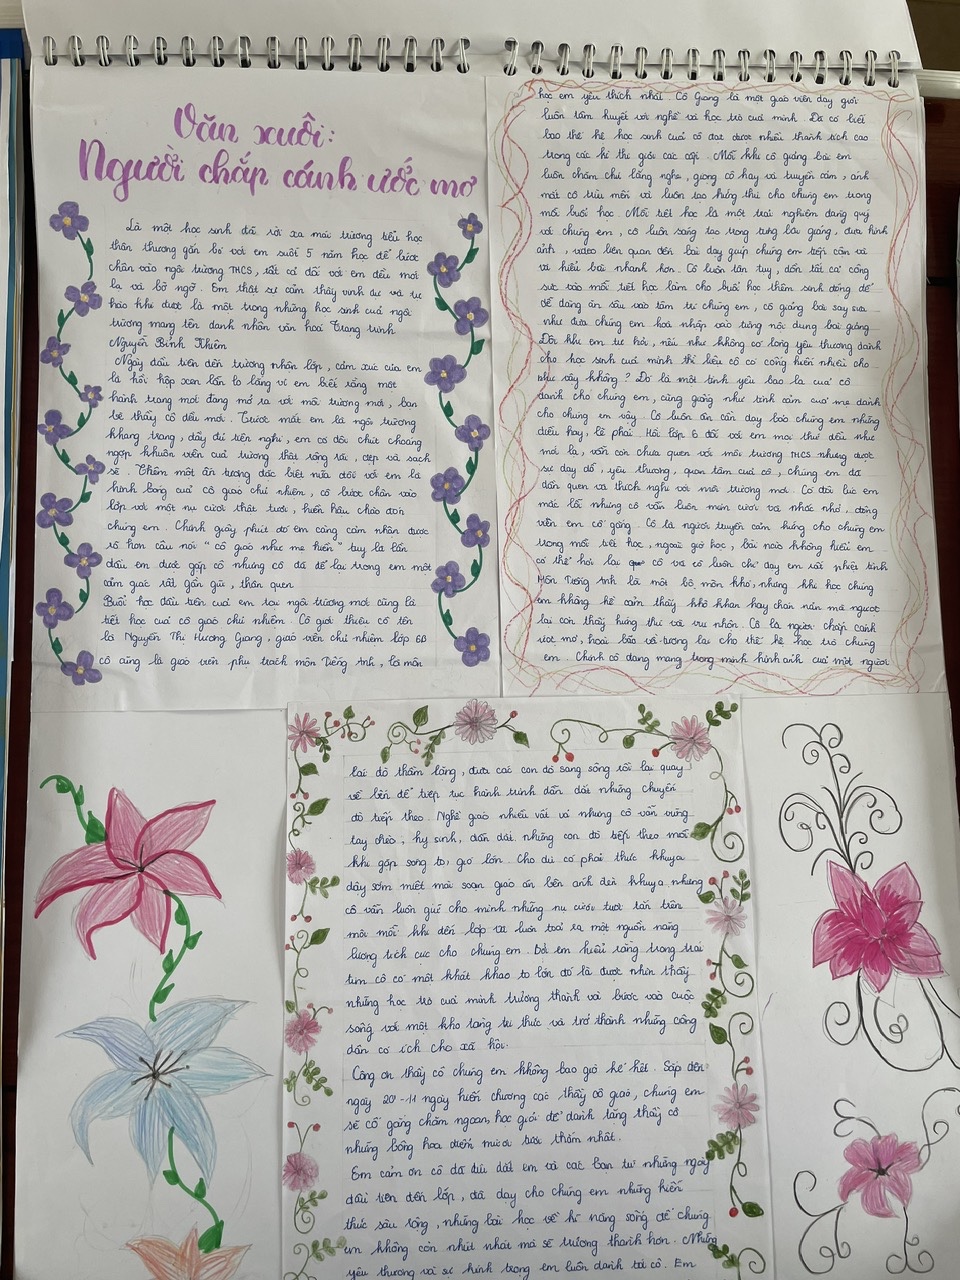 Văn xuôi:
Người chắp cánh ước mơ
Là một học sinh đã rời xa mái trường tiểu học
thân thương gắn bó với em suốt 5 năm học để bước
chân vào ngôi trường THCS, tất cả đối với em đều mới
lạ và bỡ ngỡ. Em thật sự cảm thấy vinh dự và tự
hào khi được là một trong những học sinh của ngôi
trường mang tên danh nhân văn hoá Trạng trình
Nguyễn Bỉnh Khiêm
Ngày đầu tiên đến trường nhận lớp, cảm xúc của em
là hồi hộp xen lẫn lo lắng vì em biết rằng một
hành trang mới đang mở ra với môi trường mới, bạn
bè thầy cô đều mới. Trước mắt em là ngôi trường
khang trang, đầy đủ tiện nghi, em có đôi chút choáng
ngợp khuôn viên của trường thật rộng rãi, đẹp và sạch
sẽ. Thêm một ấn tượng đặc biệt nữa đối với em là
hình bóng của cô giáo chủ nhiệm, cô bước chân vào
lớp với một nụ cười thật tươi, hiền hậu chào đón
chúng em. Chính giây phút đó em càng cảm nhận được
rõ hơn câu nói "cô giáo như mẹ hiền" tuy là lần
đầu em được gặp cô nhưng cô đã để lại trong em một
cảm giác rất gần gũi, thân quen
Buổi học đầu tiên của em tại ngôi trường mới cũng là
tiết học của cô giáo chủ nhiệm. Cô giới thiệu cô tên
là Nguyễn Thị Hương Giang, giáo viên chủ nhiệm lớp 6B
cô cũng là giáo viên phụ trách môn Tiếng Anh, là môn
học em yêu thích nhất. Cô Giang là một giáo viên dạy giỏi
luôn tâm huyết với nghề và học trò của mình. Đã có biết
bao thế hệ học sinh của cô đạt được nhiều thành tích cao
trong các kì thi giỏi các cấp. Mỗi khi cô giảng bài em
luôn chăm chú lắng nghe, giọng cô hay và truyền cảm, ánh
mắt cô trìu mến và luôn tạo hứng thú cho chúng em trong
mỗi buổi học. Mỗi tiết học là một trải nghiệm đáng quý
với chúng em, cô luôn sáng tạo trong từng bài giảng, đưa hình
ảnh, video liên quan đến bài dạy giúp chúng em tiếp cận và
và hiểu bài nhanh hơn. Cô luôn tận tuỵ, dồn tất cả công
sức vào mỗi tiết học làm cho buổi học thêm sinh động để
dễ dàng ăn sâu vào tâm trí chúng em, cô giảng bài say sưa
như đưa chúng em hoà nhập vào từng nội dung bài giảng
Đôi khi em tự hỏi, nếu như không có lòng yêu thương dành
cho học sinh của mình thì liệu cô có cống hiến nhiều cho
như vậy không? Đó là một tình yêu bao la của cô
dành cho chúng em, cũng giống như tình cảm của mẹ dành
cho chúng em vậy. Cô luôn ân cần dạy bảo chúng em những
điều hay, lẽ phải. Hồi lớp 6 đối với em mọi thứ đều như
mới lạ, vẫn còn chưa quen với môi trường THCS nhưng được
sự dạy dỗ, yêu thương, quan tâm của cô, chúng em đã
dần quen và thích nghi với môi trường mới. Có đôi lúc em
mắc lỗi nhưng cô vẫn luôn mỉm cười và nhắc nhở, động
viên em cố gắng. Cô là người truyền cảm hứng cho chúng em
trong mỗi tiết học, ngoài giờ học, bài nào không hiểu em
có thể hỏi lại cô và cô luôn chỉ dạy em rất nhiệt tình
Môn Tiếng Anh là một bộ môn khó, nhưng khi học chúng
em không hề cảm thấy khô khan hay chán nản mà ngược
lại còn thấy hứng thú và vui nhộn. Cô là người chắp cánh
ước mơ, hoài bão và tương lai cho thế hệ học trò chúng
em. Chính cô đang mang trong mình hình ảnh của một người
lái đò thầm lặng, đưa các con đò sang sông rồi lại quay
về bến để tiếp tục hành trình dẫn dắt những chuyến
đò tiếp theo. Nghề giáo nhiều vất vả nhưng cô vẫn vững
tay chèo, hy sinh, dẫn dắt những con đò tiếp theo mỗi
khi gặp sóng to, gió lớn. Cho dù có phải thức khuya
dậy sớm miệt mài soạn giáo án bên ánh đèn khuya nhưng
cô vẫn luôn giữ cho mình những nụ cười tươi tắn trên
môi mỗi khi đến lớp và luôn toả ra một nguồn năng
lượng tích cực cho chúng em. Bởi em hiểu rằng trong trái
tim cô có một khát khao to lớn đó là được nhìn thấy
những học trò của mình trưởng thành và bước vào cuộc
sống với một kho tàng tri thức và trở thành những công
dân có ích cho xã hội.
Công ơn thầy cô chúng em không bao giờ kể hết. Sắp đến
ngày 20-11 ngày hiến chương các thầy cô giáo, chúng em
sẽ cố gắng chăm ngoan, học giỏi để dành tặng thầy cô
những bông hoa điểm mười tươi thắm nhất.
Em cảm ơn cô đã dìu dắt em và các bạn từ những ngày
đầu tiên đến lớp, đã dạy cho chúng em những kiến
thức sâu rộng, những bài học về kĩ năng sống để chúng
em không còn nhút nhát mà sẽ trưởng thành hơn. Những
yêu thương và sự kính trọng em luôn dành tới cô. Em